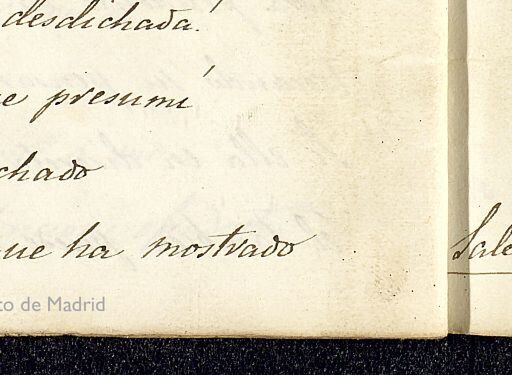 desdichada!
e presumí
chado
que ha mostrado
Sale
to de Madrid